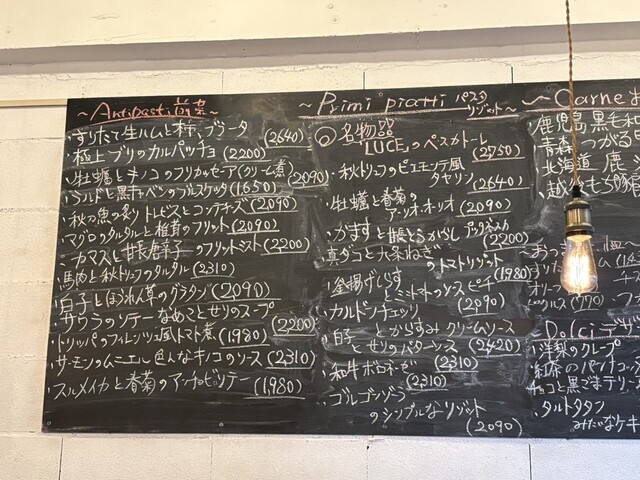 ~Antipasti前菜~
・すりたて生ハムと柿、ブラータ (2640)
・極上ブリのカルパッチョ (2200)
・牡蠣とキノコのフリカッセーア(クリーム煮) (2090)
・ラルドと黒キャベツのブルスケッタ (1650)
・秋の魚の炙り トレビスとコンテチーズ (2090)
・マグロのタルタルと椎茸のフリット (2090)
・カマスと甘長唐辛子のフリットミスト (2200)
・馬肉と秋トリュフのタルタル (2310)
・白子とほうれん草のグラタン (2090)
・サワラのソテー なめことせりのスープ (2200)
・トリッパのフィレンツェ風トマト煮 (1980)
・サーモンのムニエル 色んなキノコのソース (2310)
・スルメイカと春菊のアーリオ・ソテー (1980)
~Primi piatti パスタ リゾット~
名物
「LUCE」のペスカトーレ (2750)
・秋トリュフのピエモンテ風
タヤリン (2640)
・牡蠣と春菊の
アーリオ・オーリオ (2090)
・かますと甘長とうがらし
(2200)
・真ダコと九条ねぎ
のトマトリゾット (1980)
・釜揚げしらす
とミニトマトの
(2090)
・カルドンチェッリ
・白子とからすみクリームソース
とせりの (2420)
・和牛ボロネーゼ
(2310)
・ゴルゴンゾーラ
のシンプルなリゾット
(2090)
~Carne
鹿児島 黒毛和
青森 つがる
北海道 鹿
越後もち豚
ピクルス
Dolciデザ
・洋梨のクレープ
紅茶のパンナコッ
チョコと黒ごまテリー
・タルトタタン
みたいなケキ